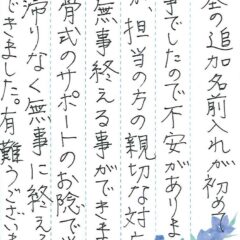 の追加名前入れが初めて
事でしたので不安がありま
が、担当の方の親切な対
無事終える事ができま
骨式のサポートのお陰で
滞りなく無事に終え
できました。有難うございま